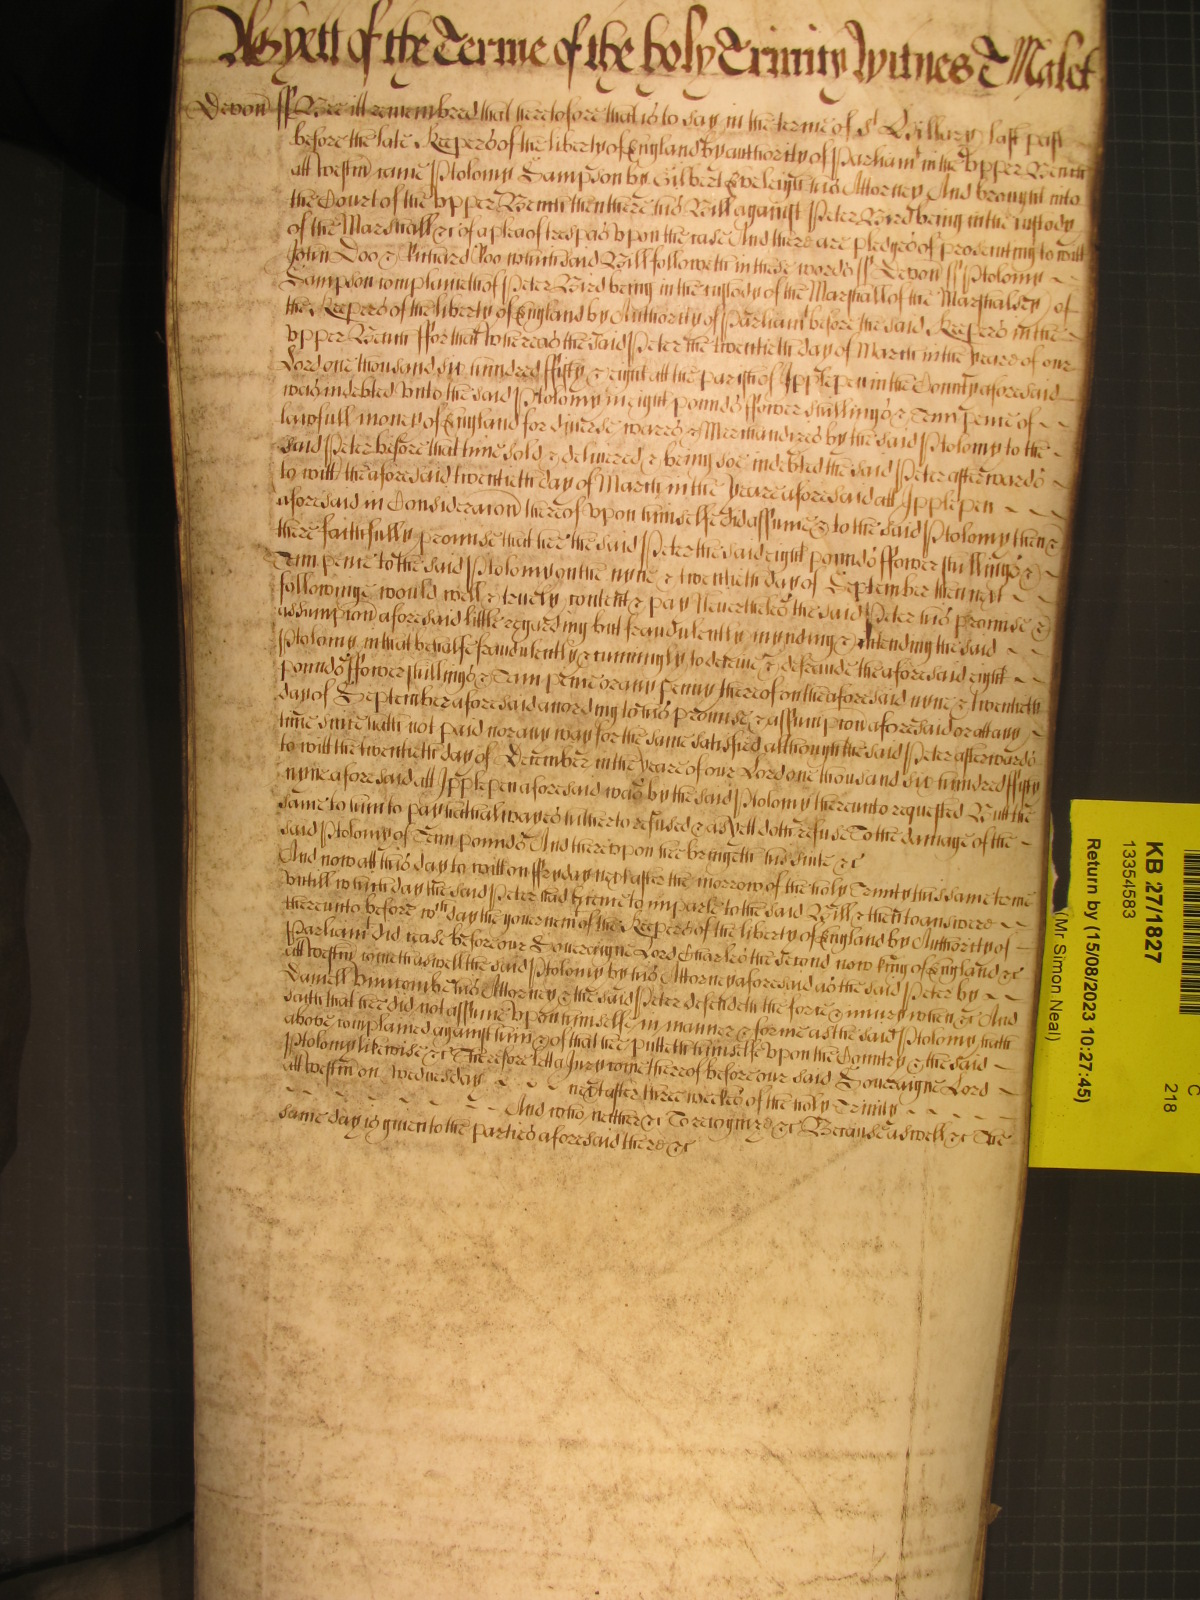 As yett of the Terme of the holy Trinity Witnes T Malet
Devon ss Bee itt remembred that heretofore that is to say in the terme of St Hillary last past
before the late Keepers of the liberty of England by authority of Parliamt in the Upper Bench
att Westm came Ptolomy Sampson by Gilbert Eveleigh his Attorney And brought into
the Court of the Upper Bench then there his Bill against Peter Bird being in the custody
of the Marshall &c of a plea of trespas upon the case And there are pledges of prosecuting to witt
John Doo & Richard Roo which said Bill followeth in these words ss Devon ss Ptolomy
Sampson complaineth of Peter Bird being in the custody of the Marshall of the Marshalsey of
the Keepers of the liberty of England by Authority of Parliamt before the said Keepers in the
Upper Bench ffor that Whereas the said Peter the twentieth day of March in the yeare of our
Lord one thousand six hundred ffifty & eight att the parish of Ipplepen in the County aforesaid
was indebted unto the said Ptolomy in eight pounds ffower shillings & Tenn pence of
lawfull money of England for diverse wares & Merchandizes by the said Ptolomy to the
said Peter before that time sold & delivered & being soe indebted the said Peter afterwards
to witt the aforesaid twentieth day of March in the yeare aforesaid att Ipplepen
aforesaid in Consideracon thereof upon himselfe did assume & to the said Ptolomy then &
there faithfully promise that hee the said Peter the said eight pounds ffower shillings &
Tenn pence to the said Ptolomy on the nyne & twentieth day of September then next
followinge would well & truely content & pay Neverthelesse the said Peter his promise &
assumpcion aforesaid little regarding but fraudulently mynding & intending the said
Ptolomy in that behalfe fraudulently & cunningly to deceive & defraude the aforesaid eight
pounds ffower shillings & Tenn pence or any penny thereof on the aforesaid nyne & twentieth
day of September aforesaid according to his promise & assumpcion aforesaid or att any
time since hath not paid nor any way for the same satisfied although the said Peter afterwards
to witt the twentieth day of December in the yeare of our Lord one thousand six hundred ffifty
nyne aforesaid att Ipplepen aforesaid was by the said Ptolomy thereunto requested Butt the
same to him to pay hath alwayes hitherto refused & as yett doth refuse To the damage of the
said Ptolomy of Tenn pounds And thereupon hee bringeth his suite &c
And now att this day to witt on ffryday next after the morrow of the holy Trinity this same terme
untill which day the said Peter had licence to imparle to the said Bill & then to answere
thereunto before wch day the goverment of the Keepers of the liberty of England by Authority of
Parliamt did cease before our Soveraigne Lord Charles the second now king of England &c
att Westm come aswell the said Ptolomy by his Attorney aforesaid as the said Peter by
his Attorney & the said Peter defendeth the force & iniury when &c And
saith that hee did not assume upon himselfe in manner & forme as the said Ptolomy hath
above complained against him & of that hee putteth himselfe upon the Country & the said
Ptolomy likewise &c Therefore lett a Jury come thereof before our said Soveraigne Lord
att Westm on Wednesday next after three weekes of the holy Trinity
And who neither &c To recognize &c Because aswell &c The
same day is given to the parties aforesaid there &c
C
218
KB 27/1827
13354583
Return by (15/08/2023 10:27:45)
(Mr Simon Neal)